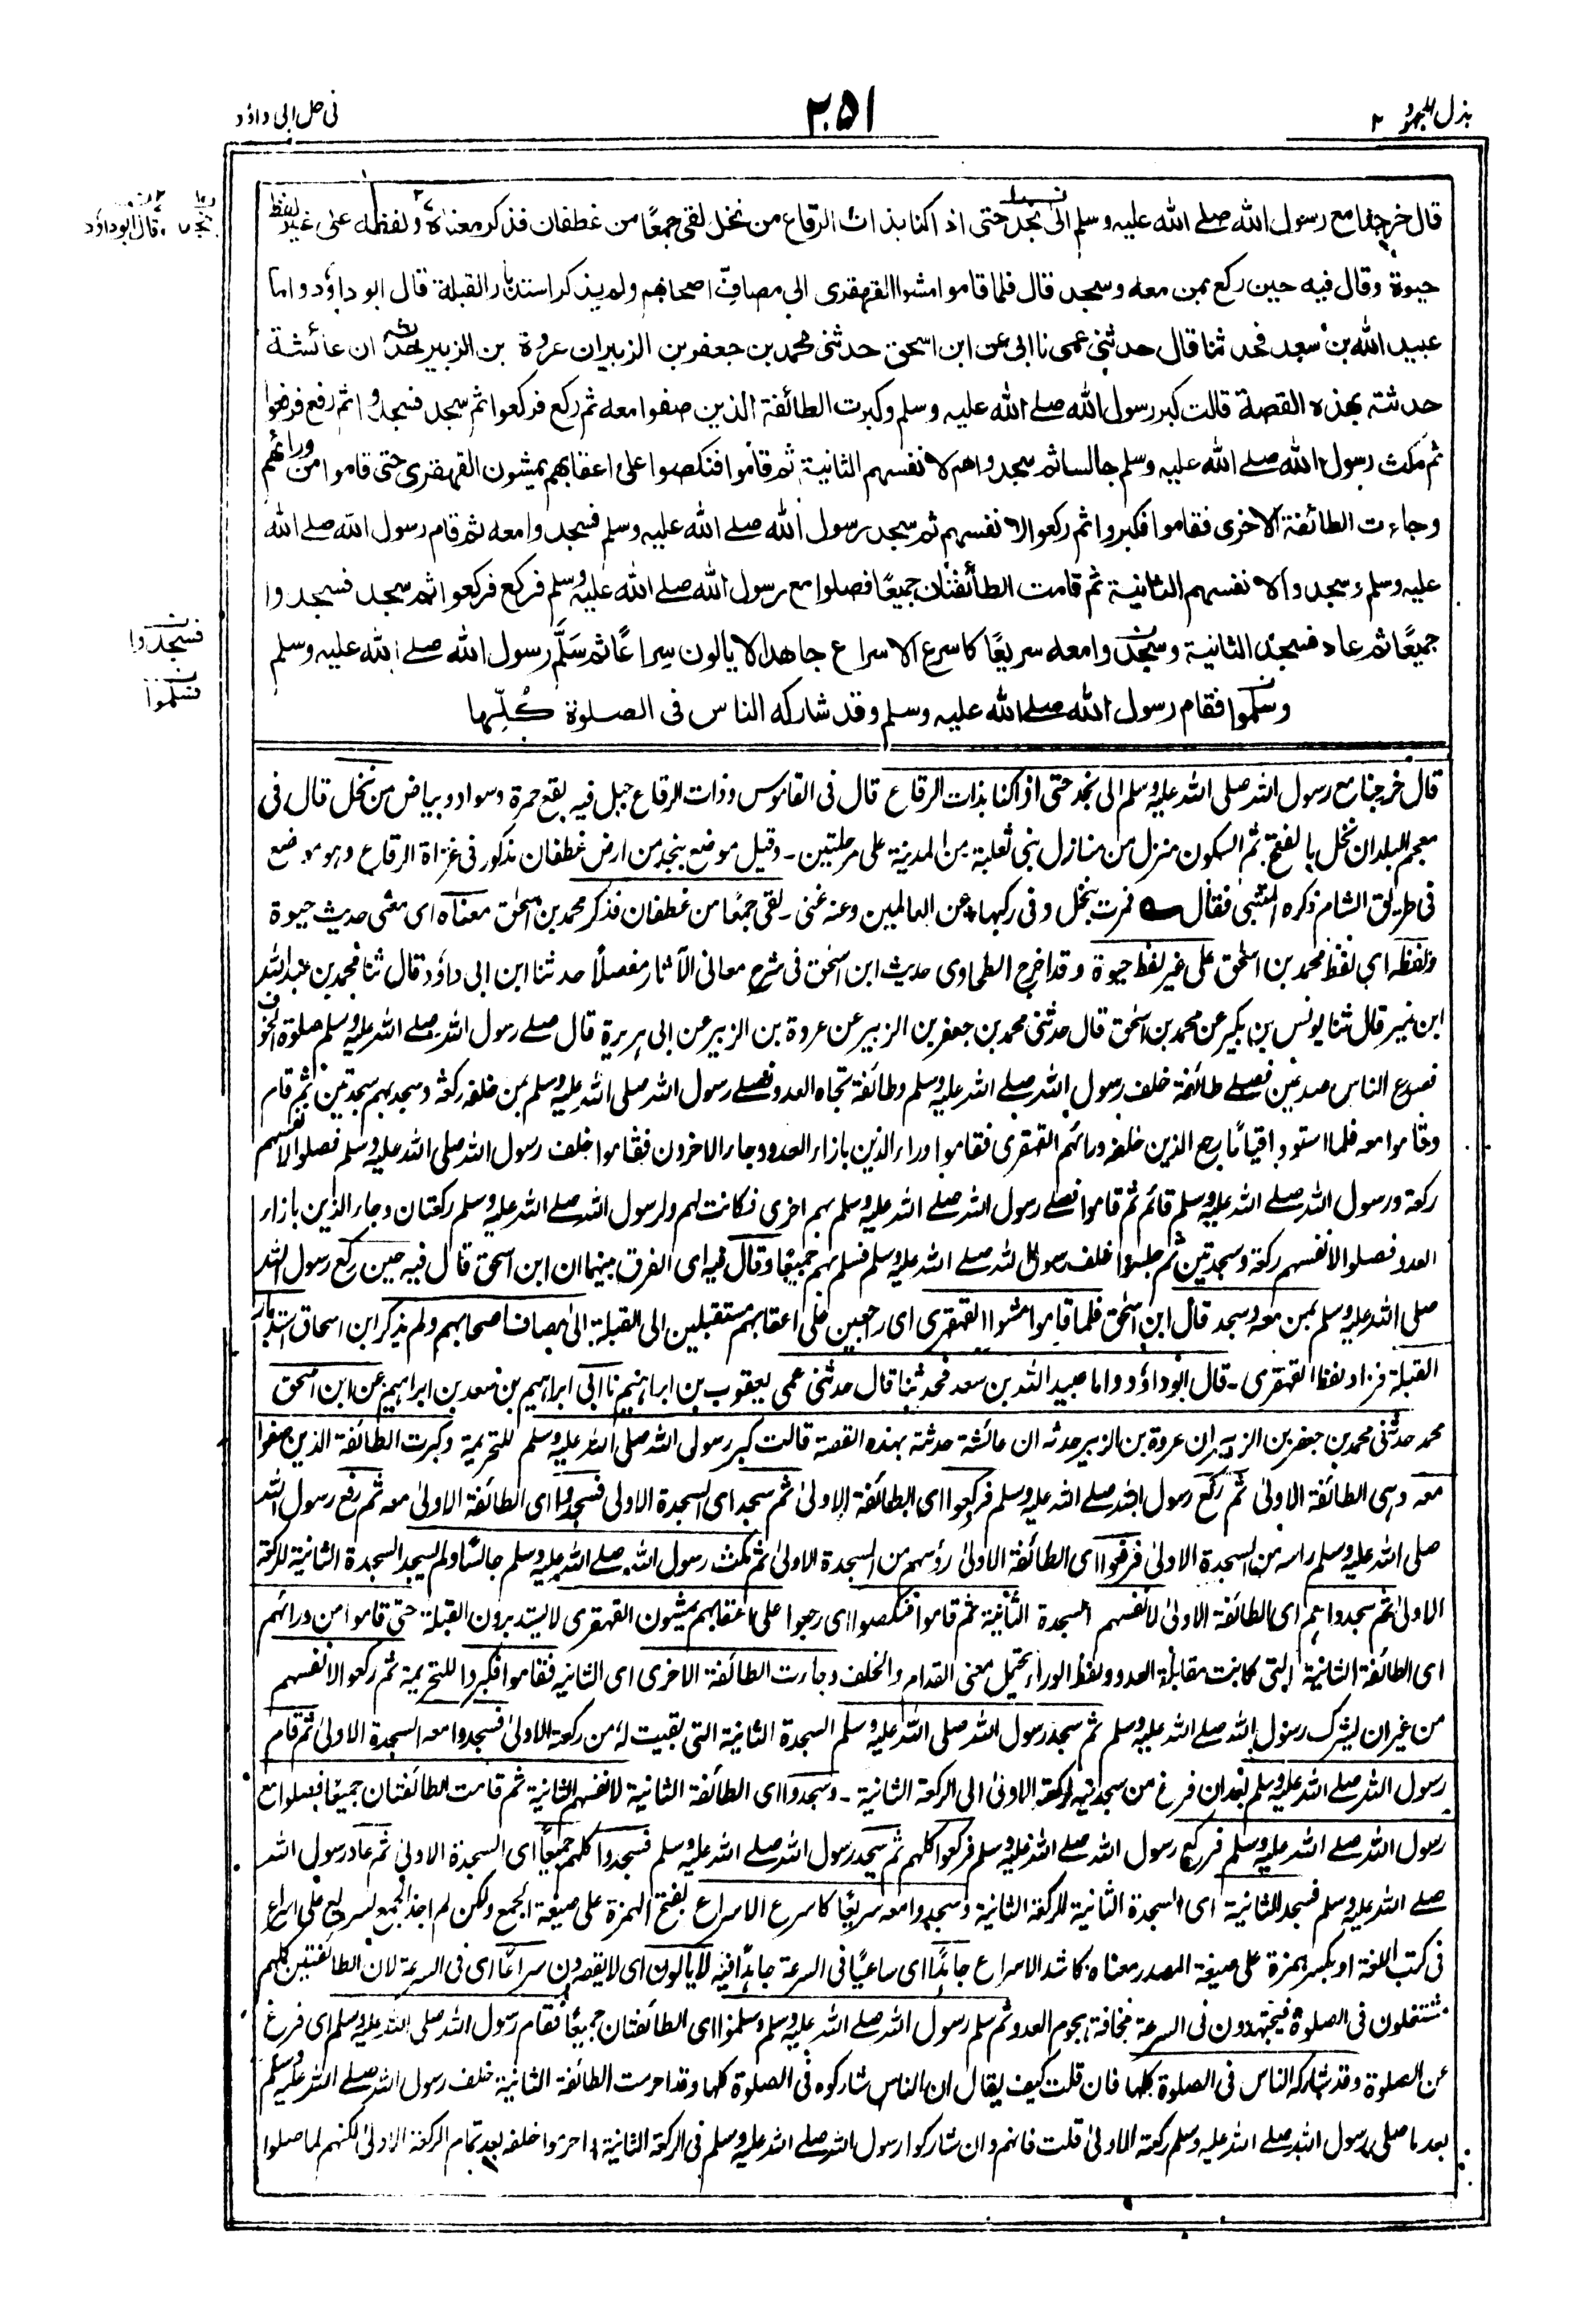 بذل المجهود ٢
٢٥١
في حل ابي داؤد
قال خرجنا مع رسول الله صلے الله عليہ وسلم الى نجد حتى اذا كنا بذات الرقاع من نخل لقى جمعًا من غطفان فذكر معناه ولفظه على غير لفظ
حيوة وقال فيه حين ركع بمن معه وسجد قال فلما قاموا مشوا القهقرى الى مصافّ اصحابهم ولم يذكر استدبار القبلة قال ابو داؤد واما
عبيد الله بن سعد فحدثنا قال حدثنى عمى نا ابى عن ابن اسحق حدثنى محمد بن جعفر بن الزبير ان عروة بن الزبير حدثه ان عائشة
حدثته بهذه القصة قالت كبر رسول الله صلے الله عليہ وسلم وكبرت الطائفة الذين صفوا معه ثم ركع فركعوا ثم سجد فسجدوا ثم رفع فرفعوا
ثم مكث رسول الله صلے الله عليہ وسلم جالسا ثم سجدوا هم لانفسهم الثانية ثم قاموا فنكصوا على اعقابهم يمشون القهقرى حتى قاموا من ورائهم
وجاءت الطائفة الاخرى فقاموا فكبروا ثم ركعوا لانفسهم ثم سجد رسول الله صلے الله عليہ وسلم فسجدوا معه ثم قام رسول الله صلے الله
عليہ وسلم وسجدوا لانفسهم الثانية ثم قامت الطائفتان جميعًا فصلوا مع رسول الله صلے الله عليہ وسلم فركع فركعوا ثم سجد فسجدوا
جميعًا ثم عاد فسجد الثانية وسجدوا معه سريعًا كاسرع الاسراع جاهدا لا يالون سراعًا ثم سلّم رسول الله صلے الله عليہ وسلم
وسلموا فقام رسول الله صلے الله عليہ وسلم وقد شاركه الناس في الصلوة كُلِّها
وقال ابوداؤد
فسجدوا
فسلموا
قال خرجنا مع رسول الله صلى الله عليہ وسلم الى نجد حتى اذا كنا بذات الرقاع قال فى القاموس وذات الرقاع جبل فيه بقع حمرة وسواد وبياض من نخل قال فى
معجم البلدان نخل بالفتح ثم السكون منزل من منازل بنى ثعلبة من المدينة على مرحلتين ۔ وقيل موضع بنجد من ارض غطفان مذكور فى غزاة الرقاع وهو موضع
فى طريق الشام ذكره المتنبى فقال فمرت بنخل وفى ركبها عن العالمين وعنه غنى ۔ لقى جمعًا من غطفان فذكر محمد بن اسحٰق معناه اى معنى حديث حيوة
ولفظه اى لفظ محمد بن اسحٰق على غير لفظ حيوة وقد اخرج الطحاوى حديث ابن اسحٰق فى شرح معانى الآثار مفصلًا حدثنا ابن ابى داؤد قال ثنا محمد بن عبد الله
ابن نمير قال ثنا يونس بن بكير عن محمد بن اسحٰق قال حدثنى محمد بن جعفر بن الزبير عن عروة بن الزبير عن ابى هريرة قال صلے رسول الله صلے الله عليہ وسلم صلوة الخوف
فصدع الناس صدعين فصلے طائفة خلف رسول الله صلے الله عليہ وسلم وطائفة تجاه العدو فصلے رسول الله صلى الله عليہ وسلم بمن خلفه ركعة وسجد بهم سجدتين ثم قام
وقاموا معه فلما استووا قيامًا رجع الذين خلفه ورائهم القهقرى فقاموا وراء الذين بازاء العدو وجاء الاخرون فقاموا خلف رسول الله صلى الله عليہ وسلم فصلوا لانفسهم
ركعة ورسول الله صلے الله عليہ وسلم قائم ثم قاموا فصلے رسول الله صلے الله عليہ وسلم بهم اخرى فكانت لهم ولرسول الله صلے الله عليہ وسلم ركعتان وجاء الذين بازاء
العدو فصلوا لانفسهم ركعة وسجدتين ثم جلسوا خلف رسول الله صلے الله عليہ وسلم فسلم بهم جميعًا وقال فيه اى الفرق بينهما ان ابن اسحق قال فيه حين ركع رسول الله
صلى الله عليہ وسلم بمن معه وسجد قال ابن اسحٰق فلما قاموا مشوا القهقرى اى راجعين على اعقابهم مستقبلين الى القبلة الى مصاف اصحابهم ولم يذكر ابن اسحاق استدبار
القبلة فزاد لفظ القهقرى ۔ قال ابوداؤد واما عبيد الله بن سعد فحدثنا قال حدثنى عمى يعقوب بن ابراهيم نا ابى ابراهيم بن سعد بن ابراهيم عن ابن اسحق
محمد حدثنى محمد بن جعفر بن الزبير ان عروة بن الزبير حدثه ان عائشة حدثته بهذه القصة قالت كبر رسول الله صلى الله عليہ وسلم للتحريمة وكبرت الطائفة الذين صفوا
معه وهى الطائفة الاولىٰ ثم ركع رسول الله صلے الله عليہ وسلم فركعوا اى الطائفة الاولىٰ ثم سجد اى السجدة الاولى فسجدوا اى الطائفة الاولىٰ معه ثم رفع رسول الله
صلى الله عليہ وسلم راسه من السجدة الاولىٰ فرفعوا اى الطائفة الاولىٰ رؤسهم من السجدة الاولىٰ ثم مكث رسول الله صلے الله عليہ وسلم جالسًا ولم يسجد السجدة الثانية للركعة
الاولىٰ ثم سجدوا هم اى الطائفة الاولىٰ لانفسهم السجدة الثانية ثم قاموا فنكصوا اى رجعوا على اعقابهم يمشون القهقرى لا يستدبرون القبلة حتى قاموا من ورائهم
اى الطائفة الثانية التى كانت مقابلة العدو ولفظ الوراء يحتمل معنى القدام والخلف وجاءت الطائفة الاخرى اى الثانيه فقاموا فكبروا للتحريمة ثم ركعوا لانفسهم
من غير ان يشرك رسول الله صلے الله عليہ وسلم ثم سجد رسول الله صلى الله عليہ وسلم السجدة الثانية التى بقيت له من ركعة الاولىٰ فسجدوا معه السجدة الاولىٰ ثم قام
رسول الله صلے الله عليہ وسلم بعد ان فرغ من سجدتيه لركعة الاولىٰ الى الركعة الثانية ۔ وسجدوا اى الطائفة الثانية لانفسهم الثانية ثم قامت الطائفتان جميعًا فصلوا مع
رسول الله صلے الله عليہ وسلم فركع رسول الله صلے الله عليہ وسلم فركعوا كلهم ثم سجد رسول الله صلے الله عليہ وسلم فسجدوا كلهم جميعًا اى السجدة الاولى ثم عاد رسول الله
صلے الله عليہ وسلم فسجد الثانية اى السجدة الثانية للركعة الثانية وسجدوا معه سريعًا كاسرع الاسراع بفتح الهمزة على صيغة الجمع ولكن لم اجد الجمع لسريع على اسراع
فى كتب اللغة او بكسر همزة على صيغة المصدر معناه كاشد الاسراع جاهدًا اى ساعيًا فى السرعة جاهدًا فيه لا يالون اى لا يقصرون سراعًا اى فى السرعة لان الطائفتين كلهم
مشتغلون فى الصلوة فيجتهدون فى السرعة مخافة هجوم العدو ثم سلم رسول الله صلے الله عليہ وسلم وسلموا اى الطائفتان جميعًا فقام رسول الله صلى الله عليہ وسلم اى فرغ
عن الصلوة وقد شاركه الناس فى الصلوة كلها فان قلت كيف يقال ان الناس شاركوه فى الصلوة كلها وقد احرمت الطائفة الثانية خلف رسول الله صلے الله عليہ وسلم
بعد ما صلى رسول الله صلے الله عليہ وسلم ركعة الاولىٰ قلت فانهم وان شاركوا رسول الله صلے الله عليہ وسلم فى الركعة الثانية احرموا خلفه بعد تمام الركعة الاولىٰ لكنهم لما صلوا